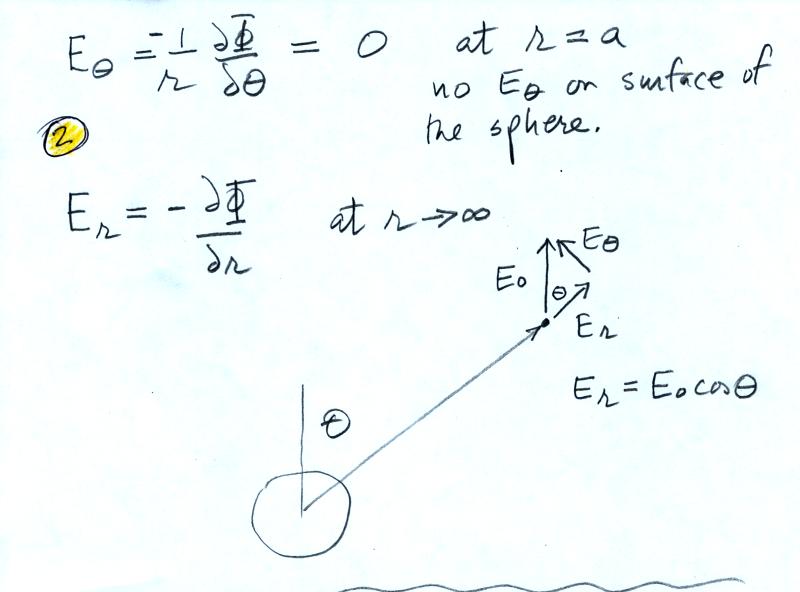 E_θ = -1/r ∂Φ/∂θ = 0 at r = a
no E_θ on surface of
the sphere.
2
E_r = - ∂Φ/∂r at r → ∞
E_θ
E_0
θ
E_r
E_r = E_0 cosθ
θ